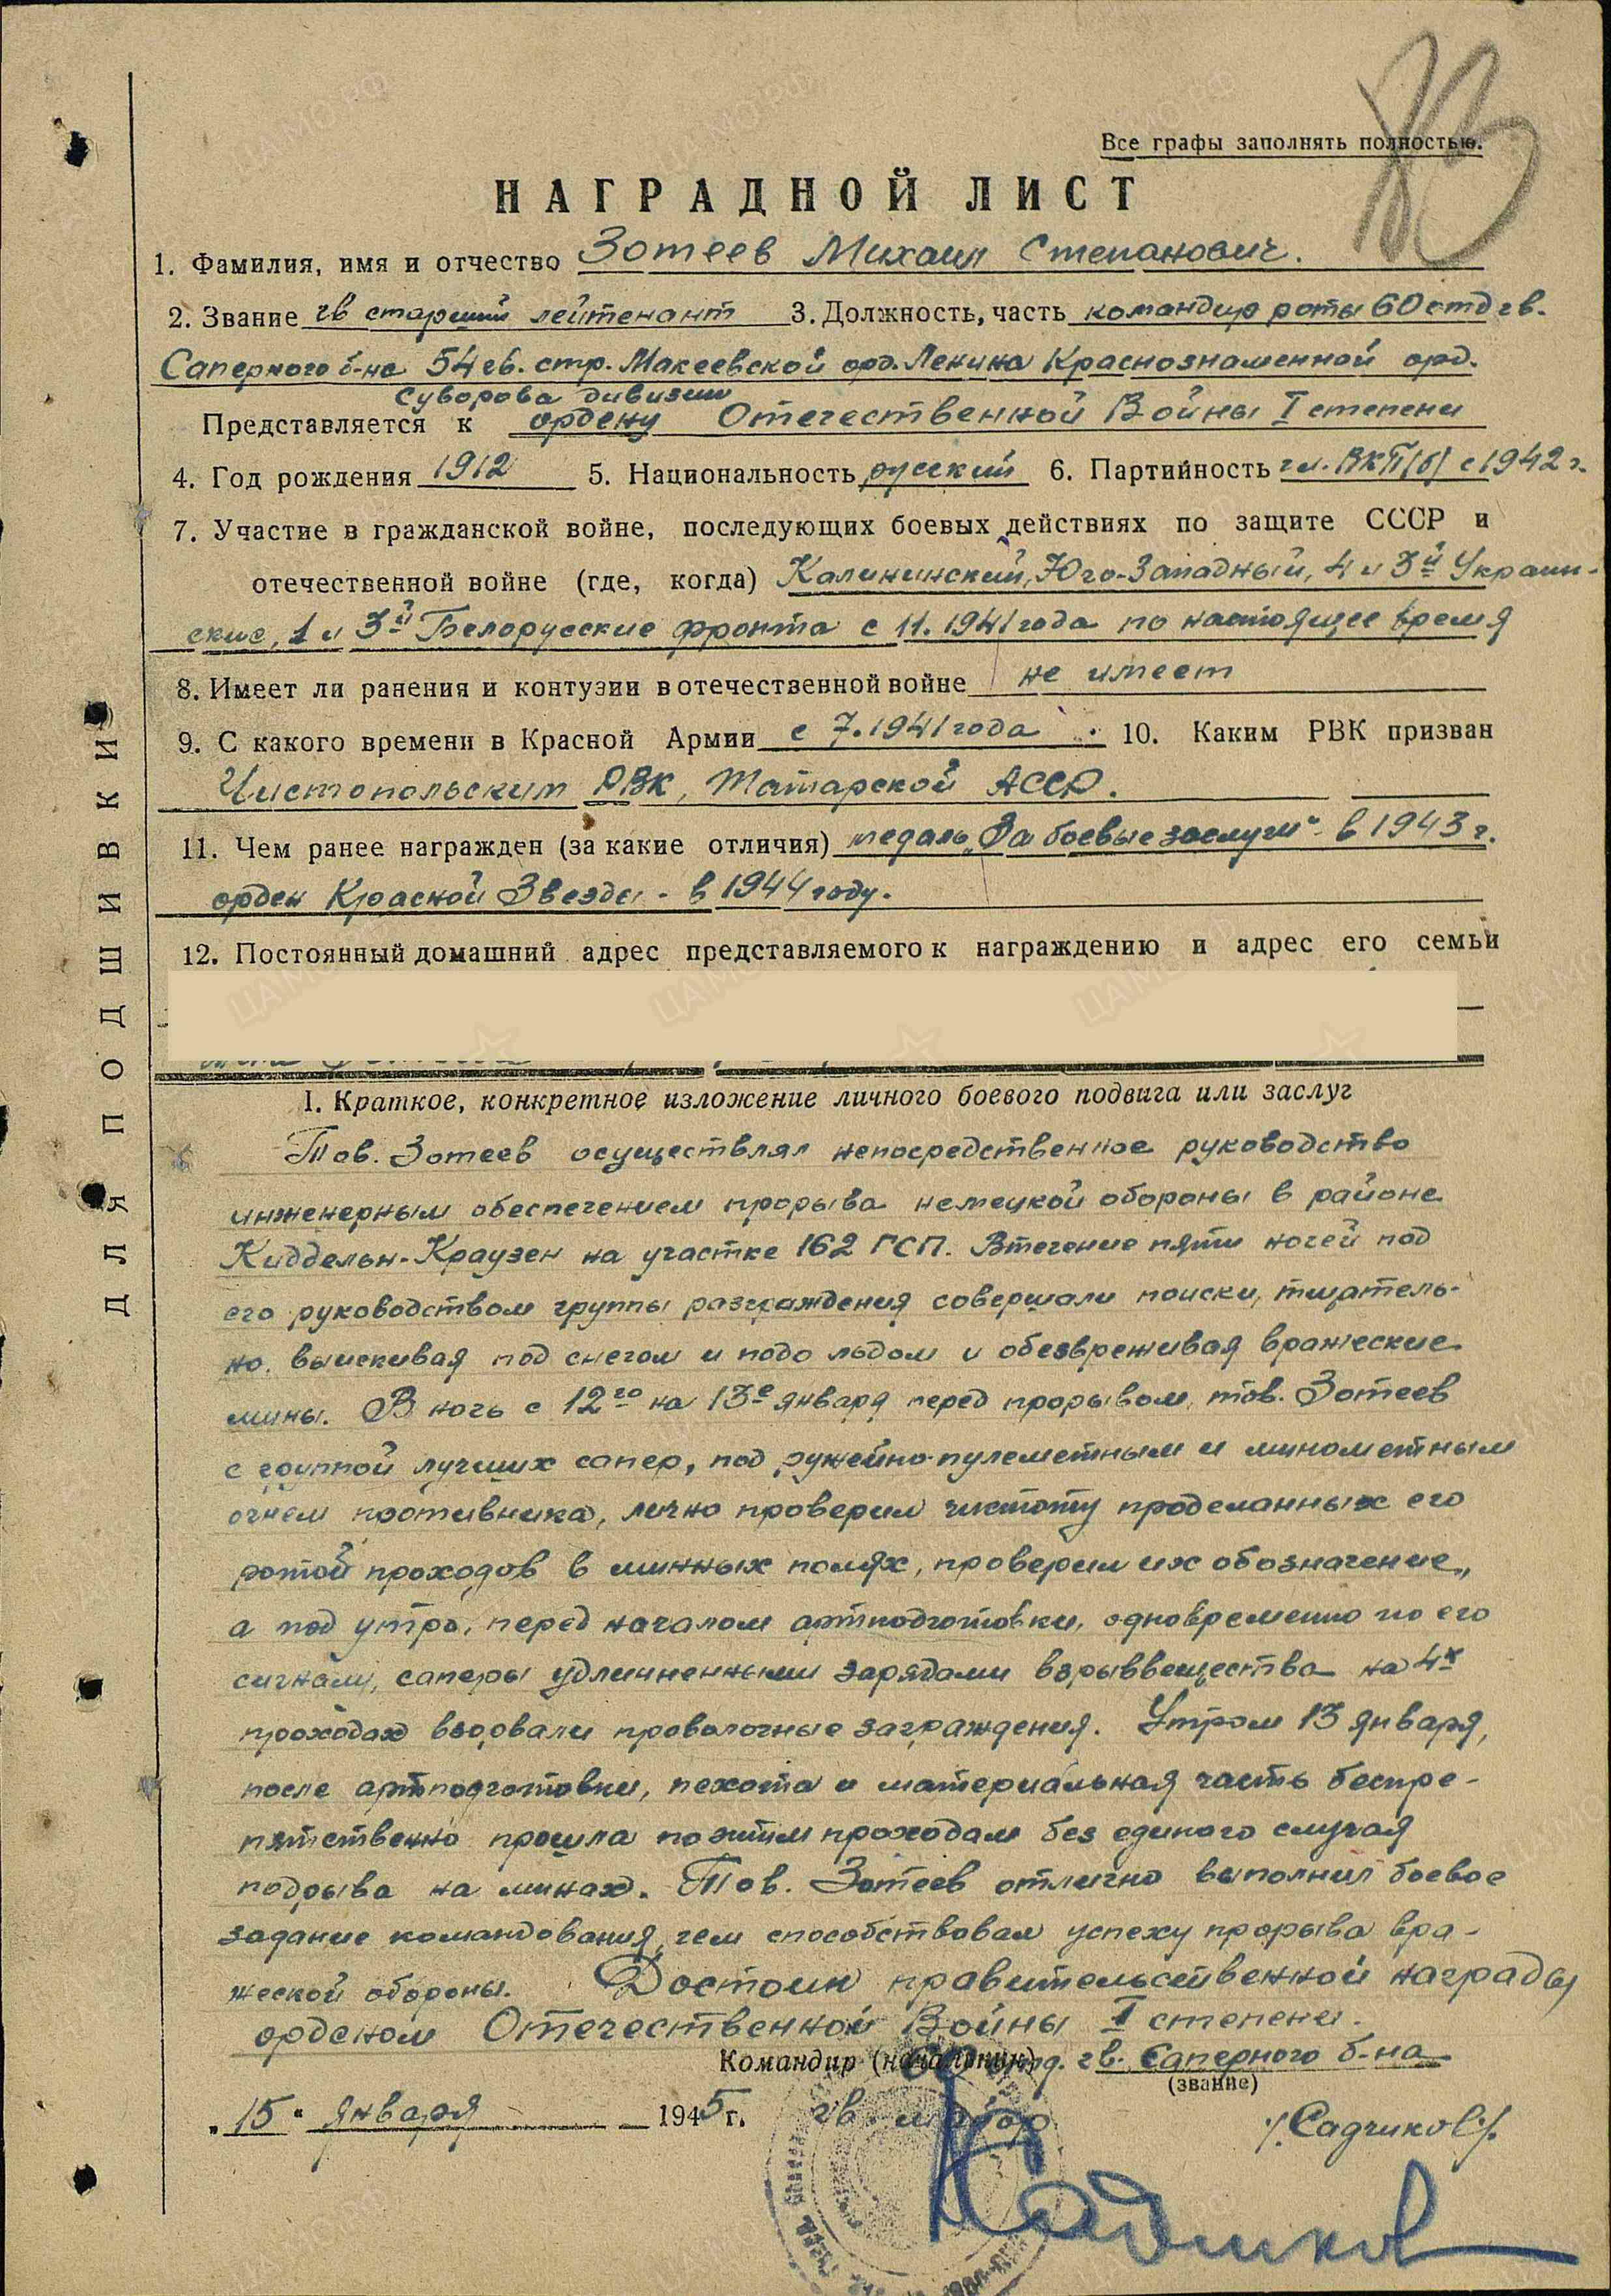 Все графы заполнять полностью.
НАГРАДНОЙ ЛИСТ
1. Фамилия, имя и отчество Зотеев Михаил Степанович.
2. Звание гв старший лейтенант 3. Должность, часть командир роты 60 отд гв.
Саперного б-на 54 гв. стр. Макеевской орд. Ленина Краснознаменной орд.
Суворова дивизии
Представляется к ордену Отечественной Войны I степени
4. Год рождения 1912 5. Национальность русский 6. Партийность чл. ВКП(б) с 1942 г.
7. Участие в гражданской войне, последующих боевых действиях по защите СССР и
отечественной войне (где, когда) Калининский, Юго-Западный, 4 и 3й Украин-
ские, 1 и 3й Белорусские фронта с 11.1941 года по настоящее время
8. Имеет ли ранения и контузии в отечественной войне не имеет
9. С какого времени в Красной Армии с 7.1941 года. 10. Каким РВК призван
Чистопольским РВК, Татарской АССР.
11. Чем ранее награжден (за какие отличия) медаль „За боевые заслуги“ - в 1943 г.
орден Красной Звезды - в 1944 году.
12. Постоянный домашний адрес представляемого к награждению и адрес его семьи
I. Краткое, конкретное изложение личного боевого подвига или заслуг
Тов. Зотеев осуществлял непосредственное руководство
инженерным обеспечением прорыва немецкой обороны в районе
Киддельн-Краузен на участке 162 ГСП. Втечение пяти ночей под
его руководством группы разграждения совершали поиски, тщатель-
но выискивая под снегом и подо льдом и обезвреживая вражеские
мины. В ночь с 12го на 13е января перед прорывом, тов. Зотеев
с группой лучших сапер, под ружейно-пулеметным и минометным
огнем противника, лично проверил чистоту проделанных его
ротой проходов в минных полях, проверил их обозначение,
а под утро, перед началом артподготовки, одновременно по его
сигналу, саперы удлиненными зарядами взрыввещества на 4х
проходах взорвали проволочные заграждения. Утром 13 января,
после артподготовки, пехота и материальная часть беспре-
пятственно прошла по этим проходам без единого случая
подрыва на минах. Тов. Зотеев отлично выполнил боевое
задание командования, чем способствовал успеху прорыва вра-
жеской обороны. Достоин правительственной награды
орденом Отечественной Войны I степени.
Командир (начальник) 60 отд. гв. Саперного б-на
(звание)
„15“ января 1945 г. гв. майор /Садчиков/.
Садчиков
ДЛЯ ПОДШИВКИ
ЦАМО.РФ